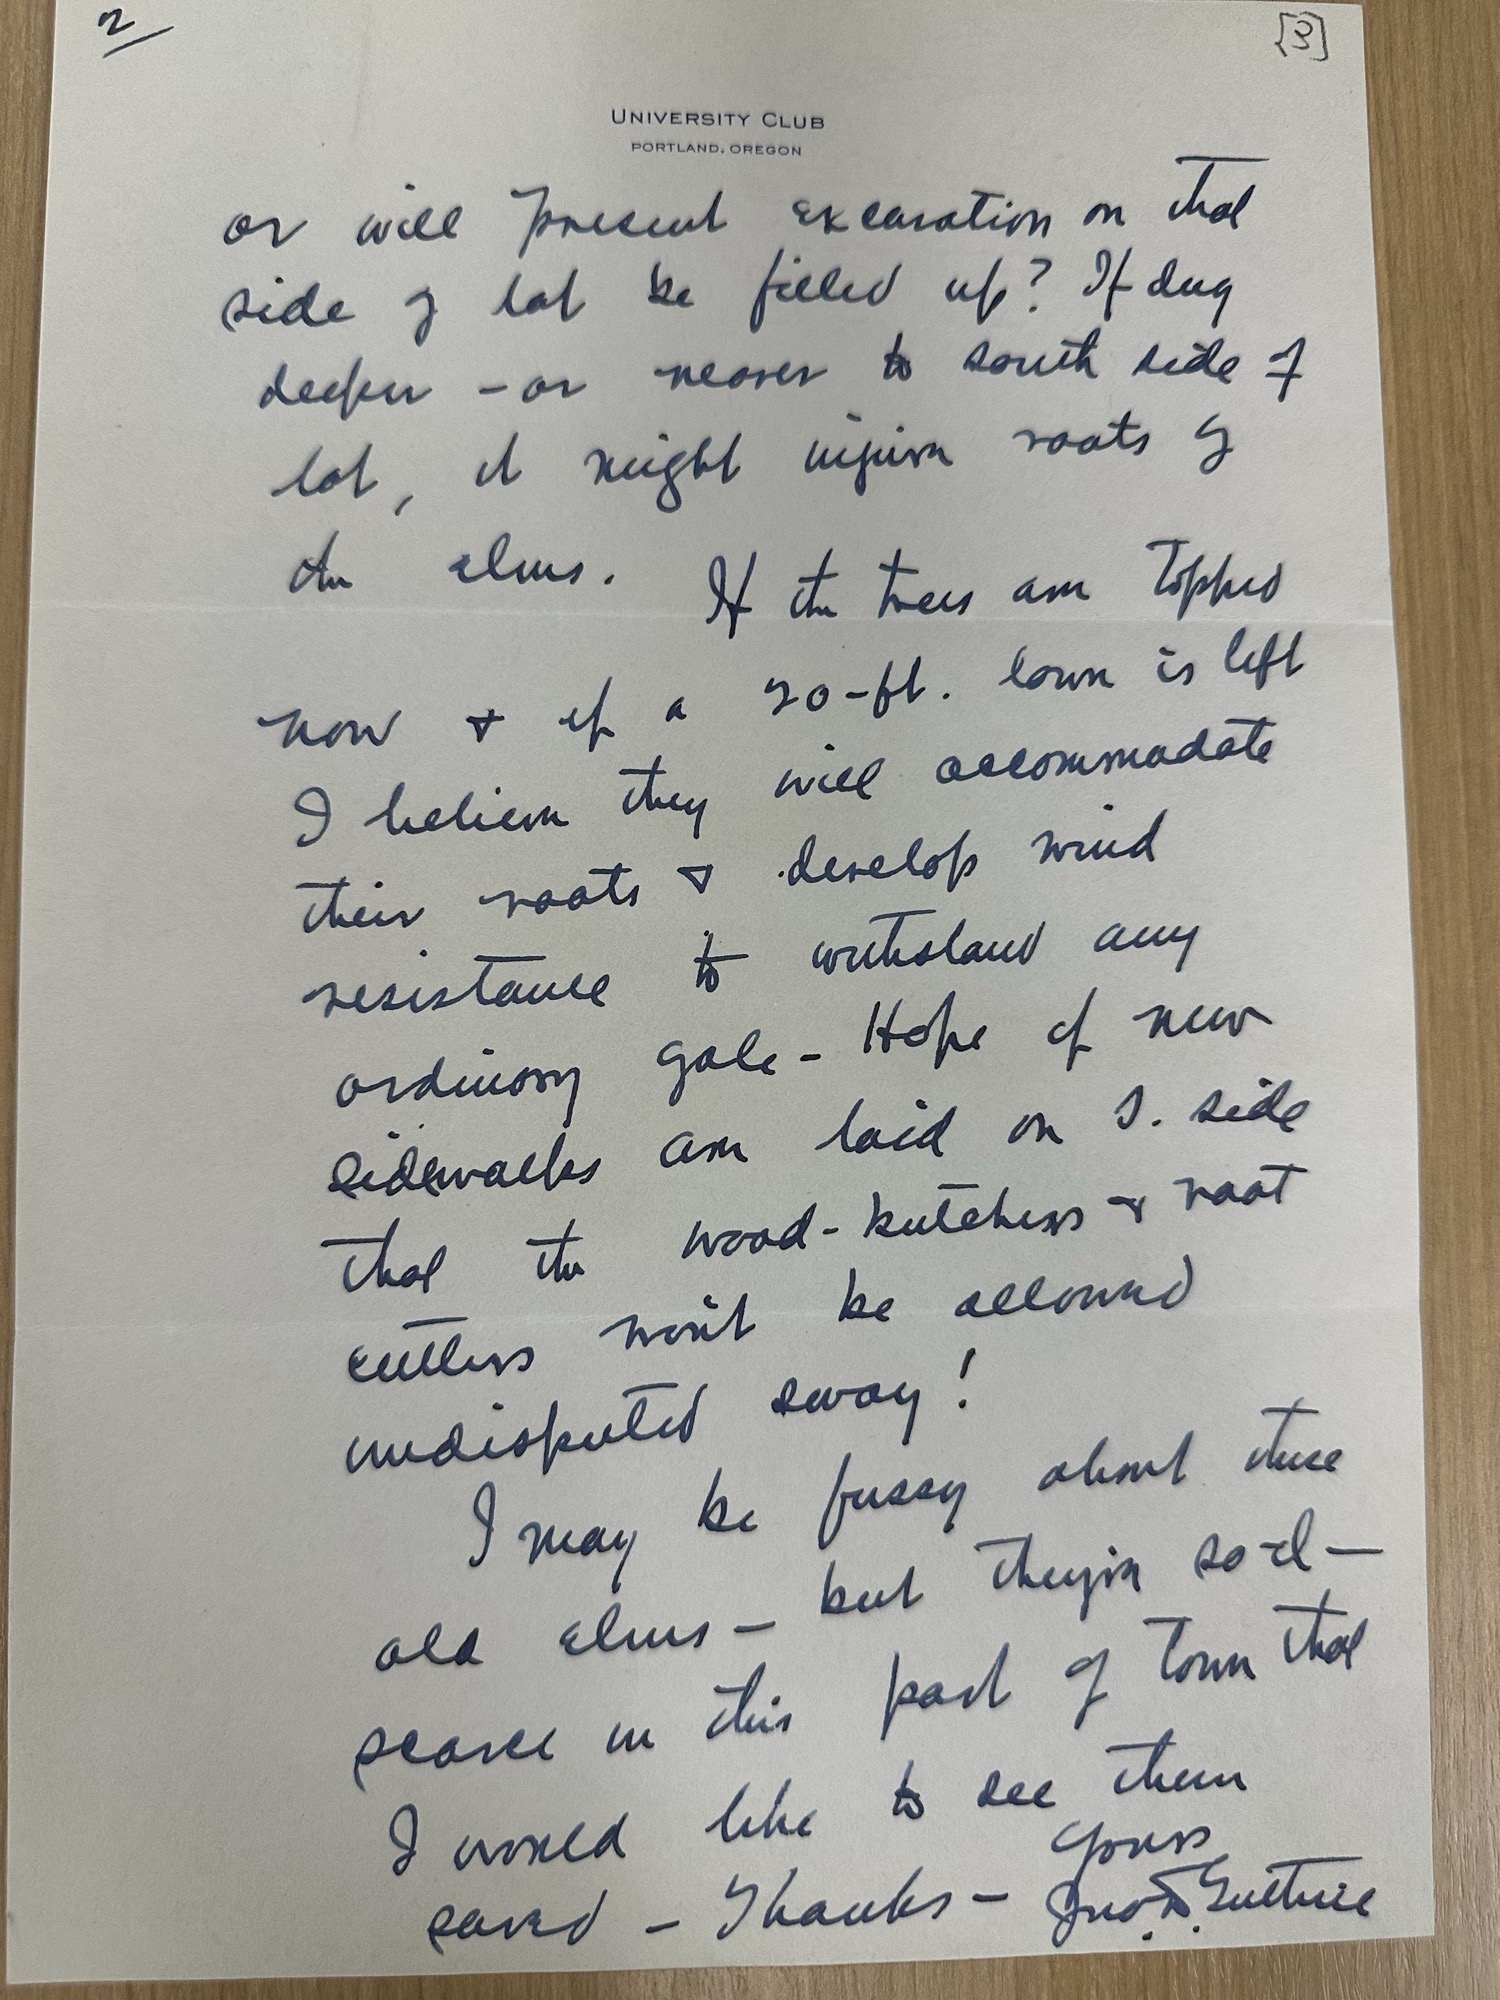 2
[3]
UNIVERSITY CLUB
PORTLAND, OREGON
or will present excavation on that
side of lot be filled up? If dug
deeper - or nearer to south side of
lot, it might injure roots of
the elms. If the trees are topped
now & if a 20-ft. lawn is left
I believe they will accommodate
their roots & develop wind
resistance to withstand any
ordinary gale - Hope if new
sidewalks are laid on S. side
that the wood-butchers & root
cutters won't be allowed
undisputed sway!
I may be fussy about these
old elms - but they're so-d—
scarce in this part of town that
I would like to see them
saved - Thanks - Yours
Jno. Guthrie